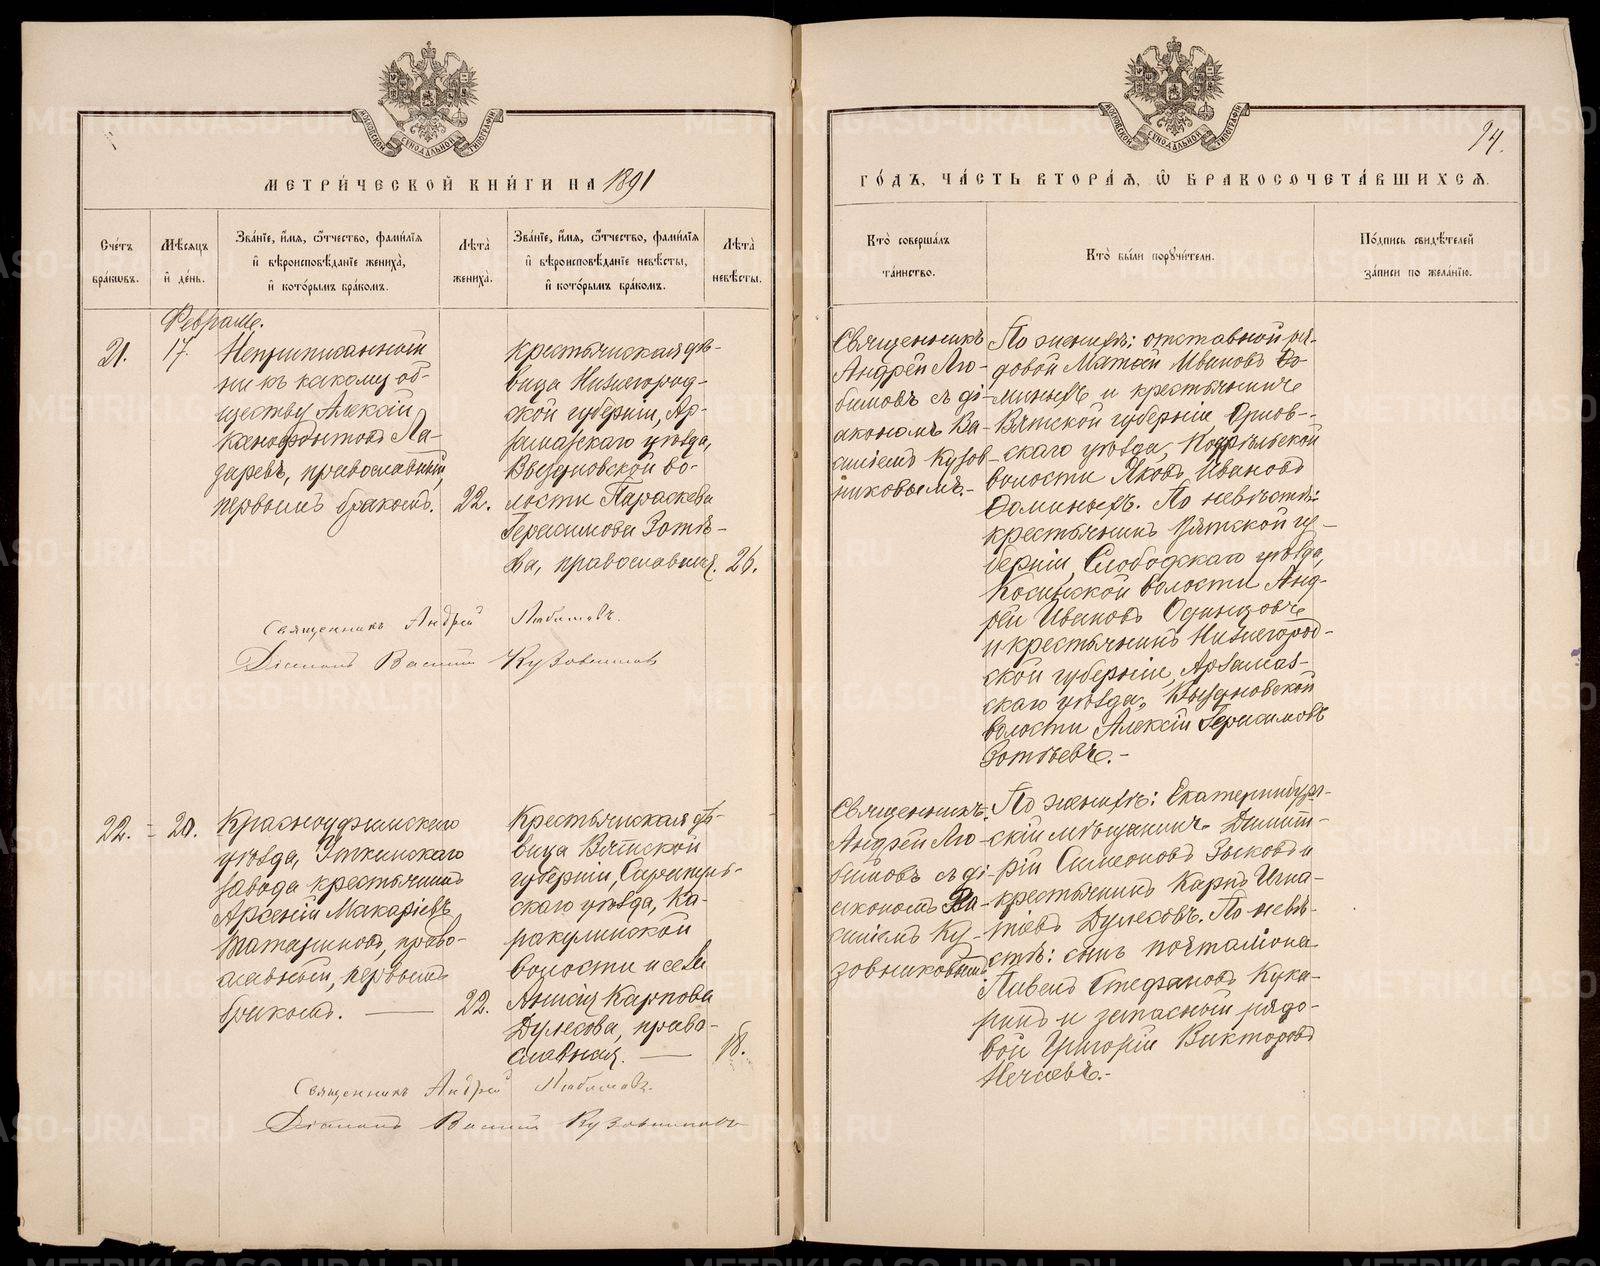 МЕТРИ́ЧЕСКОЙ КНИ́ГИ НА 1891
Сче́тъ бра́кѡвъ.
Мѣ́сяцъ и҆ де́нь.
Зва́нїе, и҆́мѧ, ѻ҆́тчество, фами́лїѧ и҆ вѣроисповѣ́данїе жениха̀, и҆ кото́рымъ бра́комъ.
Лѣта̀ жениха̀.
Зва́нїе, и҆́мѧ, ѻ҆́тчество, фами́лїѧ и҆ вѣроисповѣ́данїе невѣ́сты, и҆ кото́рымъ бра́комъ.
Лѣта̀ невѣ́сты.
Февраля.
21.
17.
Неприписанный
ни къ какому об-
ществу Алексій
Ксенофонтовъ Ла-
заревъ, православный,
первымъ бракомъ.
22.
Крестьянская дѣ-
вица Нижегород-
ской губерніи, Ар-
замасскаго уѣзда,
Выездновской во-
лости Параскева
Герасимова Зотѣ-
ва, православная.
26.
Священникъ Андрей Любимовъ.
Діаконъ Василій Кузовниковъ
22.
20.
Красноуфимскаго
уѣзда, Уткинскаго
завода крестьянинъ
Арсеній Макаріевъ
Татариновъ, право-
славный, первымъ
бракомъ.
22.
Крестьянская дѣ-
вица Вятской
губерніи, Сарапуль-
скаго уѣзда, Ка-
ракулинской
волости и села
Анна Карпова
Дулесова, право-
славная.
18.
Священникъ Андрей Любимовъ.
Діаконъ Василій Кузовниковъ
94.
ГО́ДЪ, ЧА́СТЬ ВТОРА́Я, Ѡ҆ БРАКОСОЧЕТА́ВШИХСЯ.
Кто̀ соверша́лъ та́инство.
Кто̀ бы́ли порꙋчи́тели.
По́дпись свидѣ́телей за́писи по жела́нїю.
Священникъ
Андрей Лю-
бимовъ съ ді-
акономъ Ва-
силіемъ Кузов-
никовымъ.-
По женихѣ: отставной ря-
довой Матвѣй Ивановъ До-
мининъ и крестьянинъ
Вятской губерніи Орлов-
скаго уѣзда,
волости Яковъ Ивановъ
Доминымъ. По невѣстѣ:
крестьянинъ Вятской гу-
берніи, Слободскаго уѣзда,
Косинской волости Анд-
рей Ивановъ Одинцовъ
и крестьянинъ Нижегород-
ской губерніи, Арзамас-
скаго уѣзда, Выездновской
волости Алексій Герасимовъ
Зотѣевъ.-
Священникъ
Андрей Лю-
бимовъ съ ді-
акономъ Ва-
силіемъ Ку-
зовниковымъ
По женихѣ: Екатеринбург-
скій мѣщанинъ Димит-
рій Симеоновъ Зыковъ и
крестьянинъ Карпъ Игна-
тіевъ Дулесовъ. По невѣ-
стѣ: сынъ почталіона
Павелъ Стефановъ Кука-
ринъ и запасный рядо-
вой Григорій Викторовъ
Нечаевъ.-
METRIKI.GASO-URAL.RU